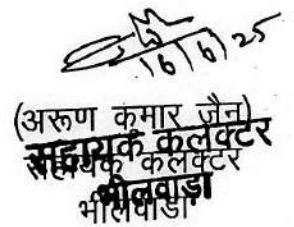 16/6/25
(अरूण कुमार जैन)
सहायक कलेक्टर
सहायक कलेक्टर
भीलवाड़ा
भीलवाडा